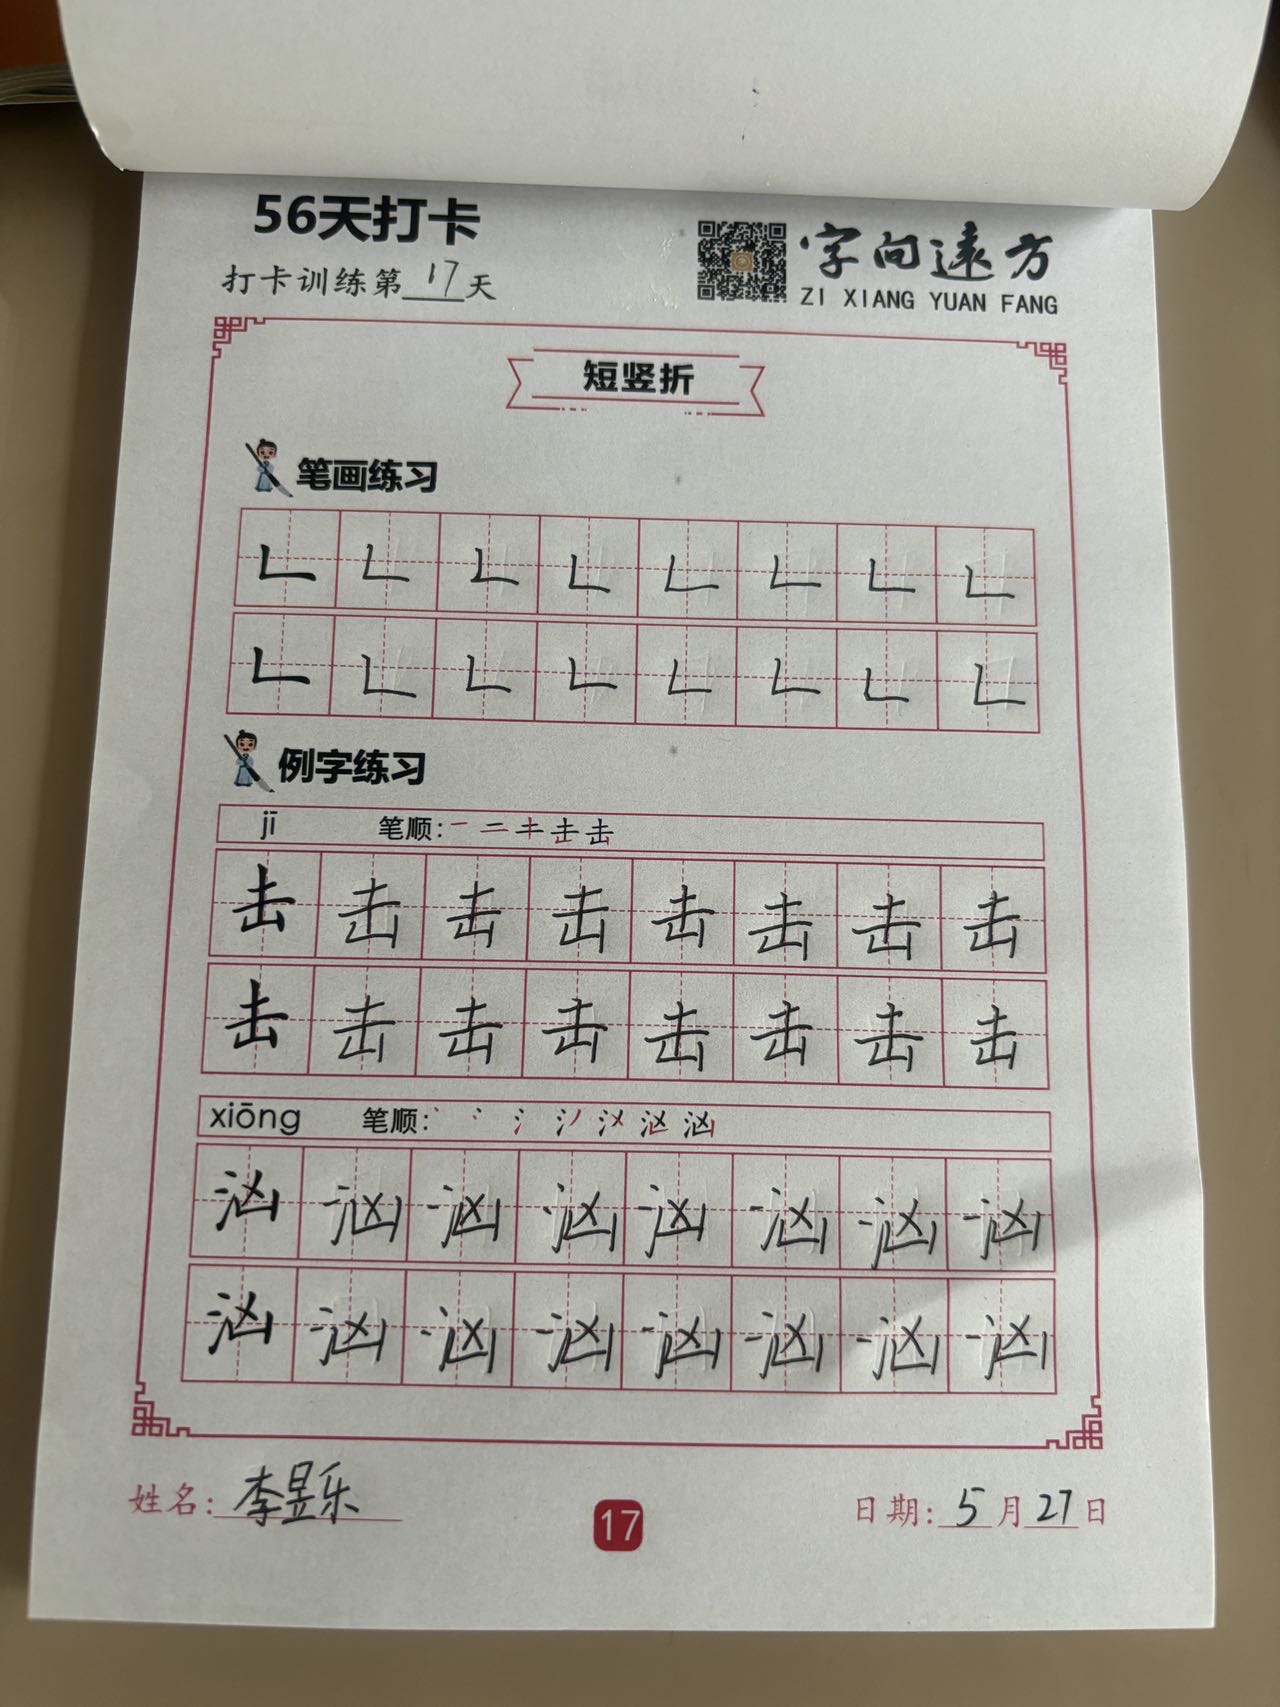 56天打卡
打卡训练第17天
字向远方
ZI XIANG YUAN FANG
短竖折
笔画练习
𠃊 𠃊 𠃊 𠃊 𠃊 𠃊 𠃊 𠃊
𠃊 𠃊 𠃊 𠃊 𠃊 𠃊 𠃊 𠃊
例字练习
jī 笔顺:
击 击 击 击 击 击 击 击
击 击 击 击 击 击 击 击
xiōng 笔顺:
汹 汹 汹 汹 汹 汹 汹 汹
汹 汹 汹 汹 汹 汹 汹 汹
姓名: 李昱乐
17
日期: 5月27日